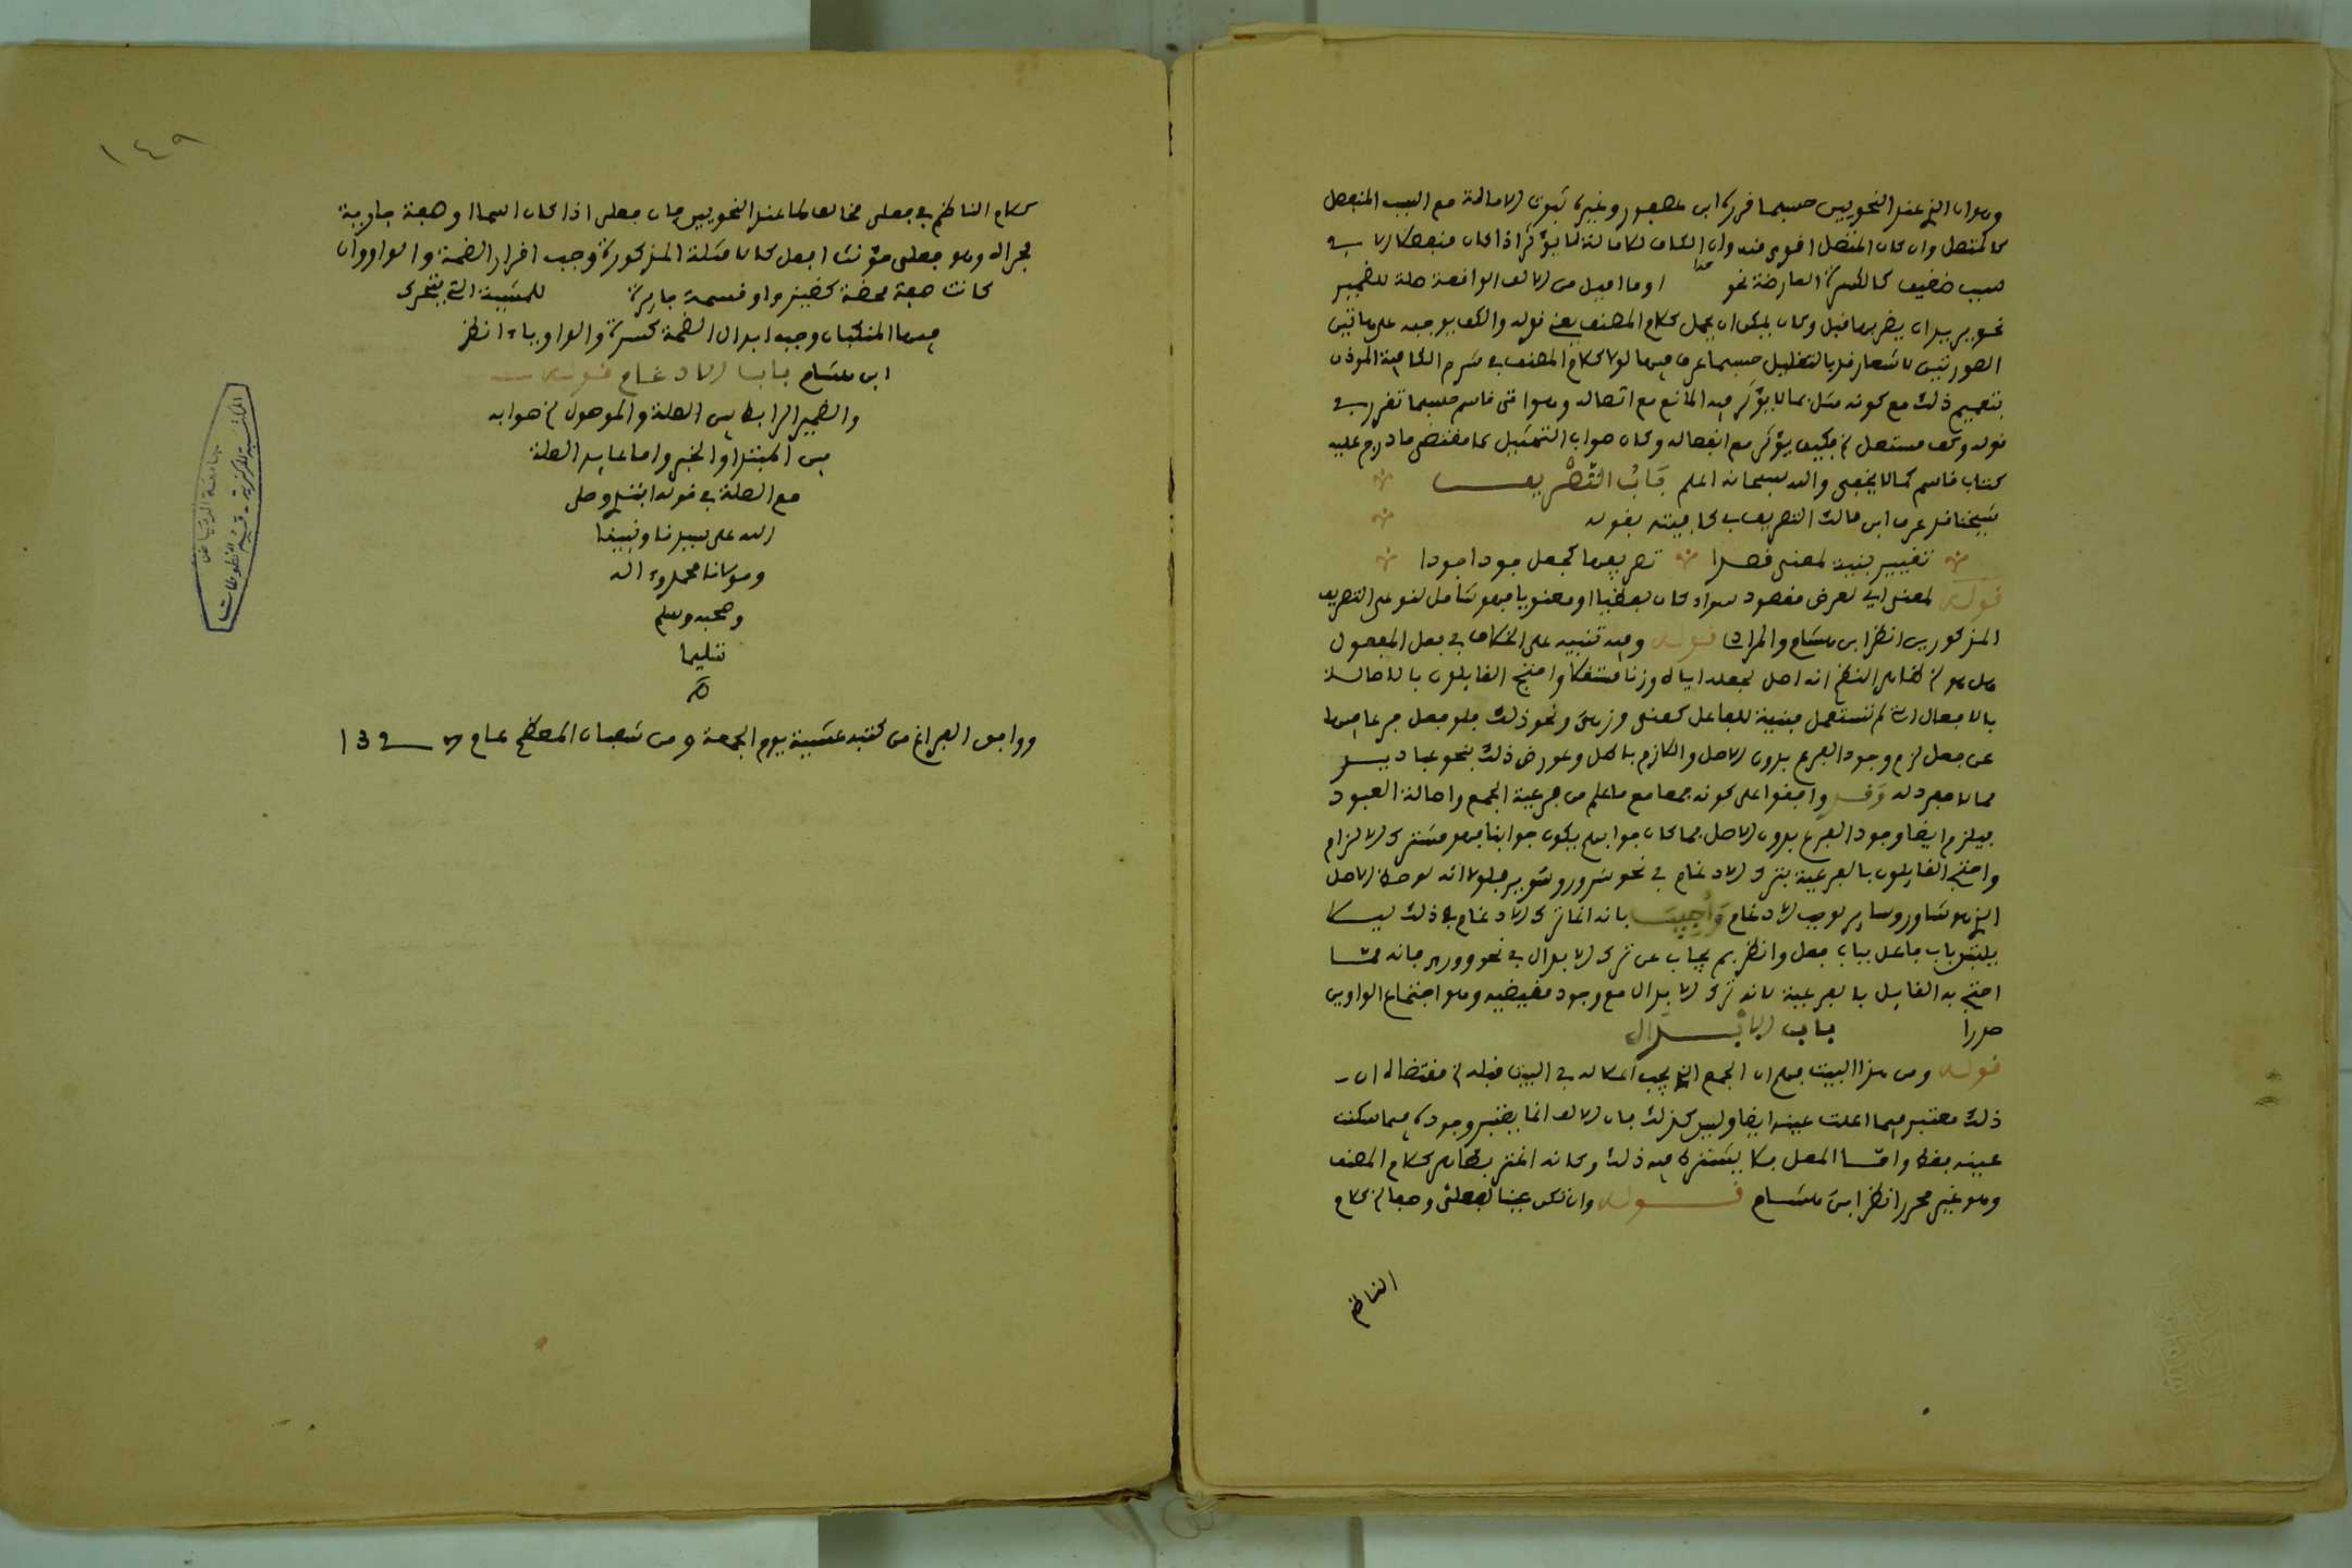 وهو ان الذي عند النحويين حسبما قرره ابن عصفور وغيره ثبوت الامالة مع السبب المنفصل
كالمتصل وان كان المتصل اقوى منه وان الكاف للامالة لما يؤثر اذا كان منفصلا
سبب ضعيف كالكسرة العارضة نحو او ما اميل من الالف الواقعة صلة للضمير
نحو يريد ان يضربها قبل وكان يمكن ان يحمل كلام المصنف يعني قوله والكف يوجبه على هاتين
الصورتين لاشعار قد بالتقليل حسبما عرف فيها لولا كلام المصنف في شرح الكافية الموذن
بتعميم ذلك مع كونه مثل بما لا يؤثر فيه المانع مع اتصاله وهو اتى قاسم حسبما تقرر في
قوله وكف مستعل فكيف يؤثر مع انفصاله وكان صواب التمثيل بمقتضى ما درج عليه
كتاب قاسم كما لا يخفى والله سبحانه اعلم باب التصريف
شيخنا قد عرف ابن مالك التصريف في كافيته بقوله
تغيير بنية لمعنى قصدا تصريفها كجعل جود اجودا
قوله لمعنى اي لغرض مقصود سواء كان لفظيا او معنويا فهو شامل لنوعي التصريف
المذكورين انظر ابن هشام والمرادي قوله وفيه تنبيه على الخلاف في فعل المفعول
هل هو ظاهر النظم انه اصل لجعله اياه وزنا مستقلا واحتج القايلون بالاصالة
بالافعال التي لم تستعمل مبنية للفاعل كعني وزهي ونحو ذلك فلو فعل فرعا فيها
عن فعل لزم وجود الفرع بدون الاصل واللازم باطل وعورض ذلك بنحو عباديد
مما لا مفرد له وقد وافقوا على كونه جمعا مع ما علم من فرعية الجمع واصالة المفرد
فيلزم ايضا وجود الفرع بدون الاصل فما كان جوابهم يكون جوابنا فهو مشترك الالزام
واحتج القايلون بالفرعية بترك الادغام في نحو سوير وشوير فلولا انه لوحظ الاصل
الذي هو شاور وساير لوجب الادغام واجيب بانه انما ترك الادغام في ذلك ليلا
يلتبس باب فاعل بباب فعل وانظر بم يجاب عن ترك الابدال في نحو ووري فانه مما
احتج به القايل بالفرعية لانه ترك الابدال مع وجود مقتضيه وهو اجتماع الواوين
صدرا باب الابدال
قوله ومن هذا البيت يعلم ان الجمع الذي يجب اعلاله في البيت قبله مقتضاه ان
ذلك معتبر فيما اعلت عينه ايضا وليس كذلك فان الالف انما يعتبر وجوده فيما سكنت
عينه فقط واما المعل فلا يشترط فيه ذلك وكانه اغتر بظاهر كلام المصنف
وهو غير محرر انظر ابن هشام قوله وان تكن عينا لفعلى وصفا كلام
الناظم
١٤٩
كلام الناظم في فعلى مخالف لما عند النحويين فان فعلى اذا كان اسما او صفة جارية
مجراه وهو فعلى مؤنث افعل كان مسئلة المذكورة وجب اقرار الضمة والواو وان
كانت صفة محضة كضيزى او قسمة جايرة للمشية التي يتحرك
فيها المنكبان وجب ابدال الضمة كسرة والواو ياء انظر
ابن هشام باب الادغام قوله
والضمير الرابط بين الصلة والموصول صوابه
بين المبتدا والخبر واما عايد الصلة
مع الصلة في قوله ابتدي وصلى
الله على سيدنا ونبينا
ومولانا محمد وءاله
وصحبه وسلم
تسليما
ووافق الفراغ من كتبه عشية يوم الجمعة 9 من شعبان المعظم عام
المكتبة المركزية - قسم المخطوطات
جامعة الرياض